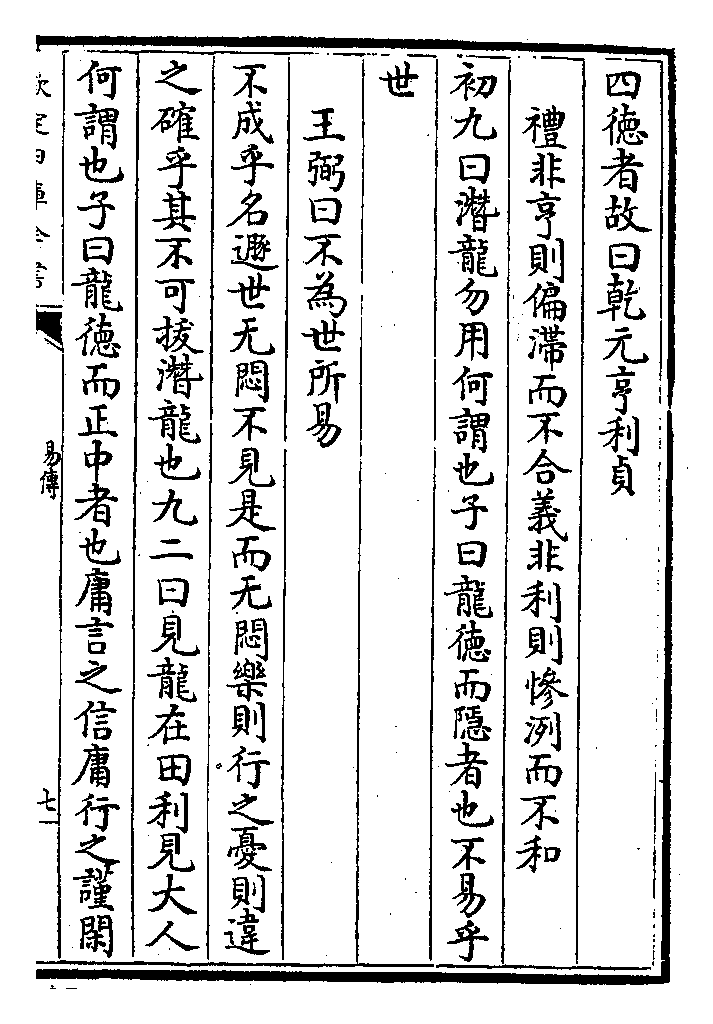 四徳者故曰乾元亨利貞
禮非亨則偏滯而不合義非利則慘洌而不和
初九曰潛龍勿用何謂也子曰龍徳而隱者也不易乎
世
王弼曰不為世所易
不成乎名遯世无悶不見是而无悶樂則行之憂則違
之確乎其不可拔潛龍也九二曰見龍在田利見大人
何謂也子曰龍徳而正中者也庸言之信庸行之謹閑
欽定四庫全書
易傳
七